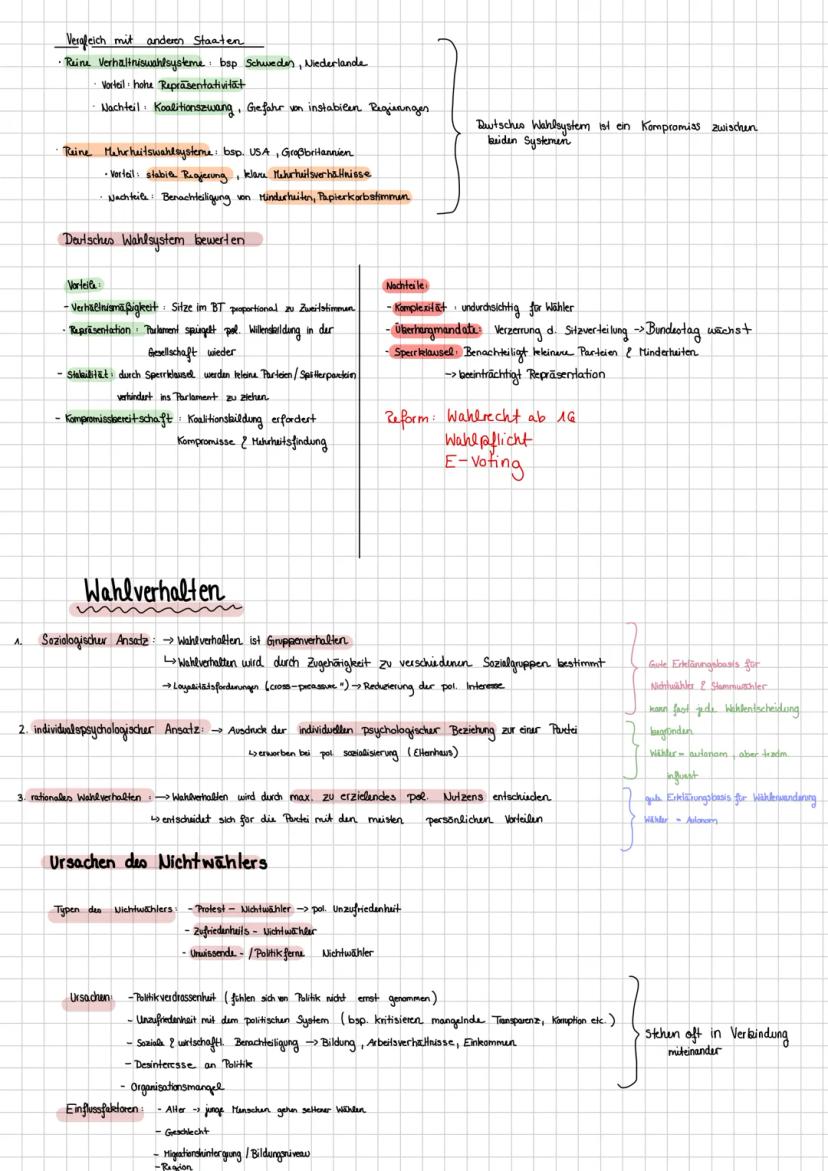 Vergleich mit anderen Staaten
· Reine Verhältniswahlsysteme : bsp Schweden, Niederlande
· Vorteil : hohe Repräsentativität
· Nachteil : Koalitionszwang, Gefahr von instabilen Regierungen
Deutsches Wahlsystem ist ein Kompromiss zwischen
beiden Systemen
· Reine Mehrheitswahlsysteme : bsp. USA, Großbritannien
· Vorteil : stabile Regierung, klare Mehrheitsverhältnisse
· Nachteile : Benachteiligung von Minderheiten, Papierkorbstimmen
Deutsches Wahlsystem bewerten
Vorteile :
- Verhältnismäßigkeit : Sitze im BT proportional zu Zweitstimmen
· Repräsentation : Parlament spiegelt pol. Willensbildung in der
Gesellschaft wieder
- Stabilität : durch Sperrklausel werden kleine Parteien/Splitterparteien
verhindert ins Parlament zu ziehen
- Kompromissbereitschaft : Koalitionsbildung erfordert
Kompromisse & Mehrheitsfindung
Nachteile :
- Komplexität : undurchsichtig für Wähler
- Überhangmandate : Verzerrung d. Sitzverteilung → Bundestag wächst
- Sperrklausel : Benachteiligt kleinere Parteien & Minderheiten
→ beeinträchtigt Repräsentation
Reform : Wahlrecht ab 16
Wahlpflicht
E-Voting
Wahlverhalten
1. Soziologischer Ansatz : → Wahlverhalten ist Gruppenverhalten
↳ Wahlverhalten wird durch Zugehörigkeit zu verschiedenen Sozialgruppen bestimmt
→ Loyalitätsforderungen (cross-preassure") → Reduzierung der pol. Interesse
Gute Erklärungsbasis für
Nichtwähler & Stammwähler
2. individualspsychologischer Ansatz : → Ausdruck der individuellen psychologischer Beziehung zur einer Partei
↳ erworben bei pol. sozialisierung (Elternhaus)
kann fast jede Wahlentscheidung
begründen
Wähler = autonom, aber trzdm.
influsst
3. rationales Wahlverhalten : → Wahlverhalten wird durch max. zu erzielendes pol. Nutzens entschieden
↳ entscheidet sich für die Partei mit den meisten persönlichen Vorteilen
gute Erklärungsbasis für Wählerwanderung
Wähler = Autonom
Ursachen des Nichtwählers
Typen des Nichtwählers : - Protest - Nichtwähler → pol. Unzufriedenheit
- Zufriedenheits - Nichtwähler
- Unwissende - / Politikferne Nichtwähler
Ursachen : - Politikverdrossenheit (fühlen sich von Politik nicht ernst genommen)
- Unzufriedenheit mit dem politischen System (bsp. kritisieren mangelnde Transparenz, Korruption etc.)
- Soziale & wirtschaftl. Benachteiligung → Bildung, Arbeitsverhältnisse, Einkommen
- Desinteresse an Politik
- Organisationsmangel
Stehen oft in Verbindung
miteinander
Einflussfaktoren : - Alter → junge Menschen gehen seltener Wählen
- Geschlecht
- Migrationshintergrung / Bildungsniveau
- Region